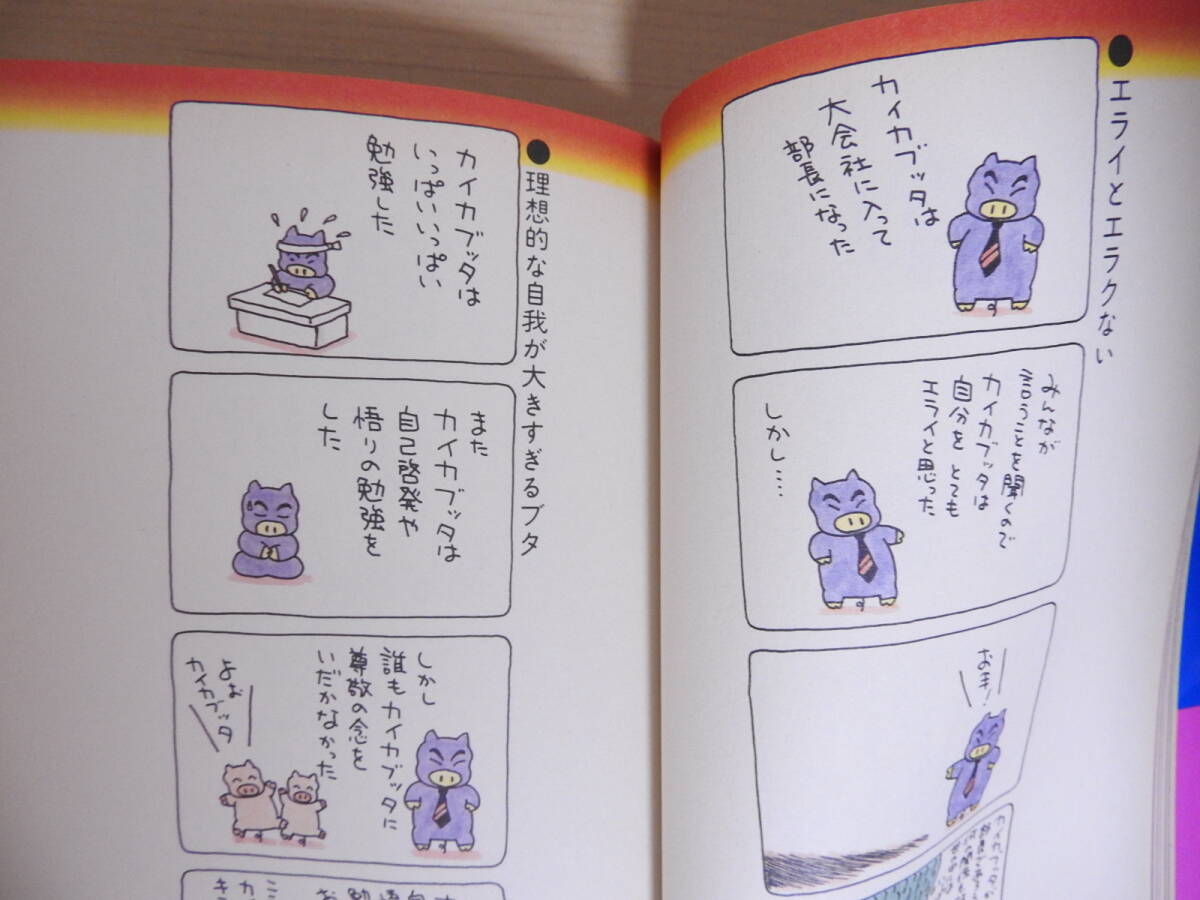 ●エライとエラクない
カイカブッタは
大会社に入って
部長になった
みんなが
言うことを聞くので
カイカブッタは
自分をとても
エライと思った
しかし…
お手!
●理想的な自我が大きすぎるブタ
カイカブッタは
いっぱいいっぱい
勉強した
また
カイカブッタは
自己啓発や
悟りの勉強を
した
しかし
誰もカイカブッタに
尊敬の念を
いだかなかった
よお
カイカブッタ